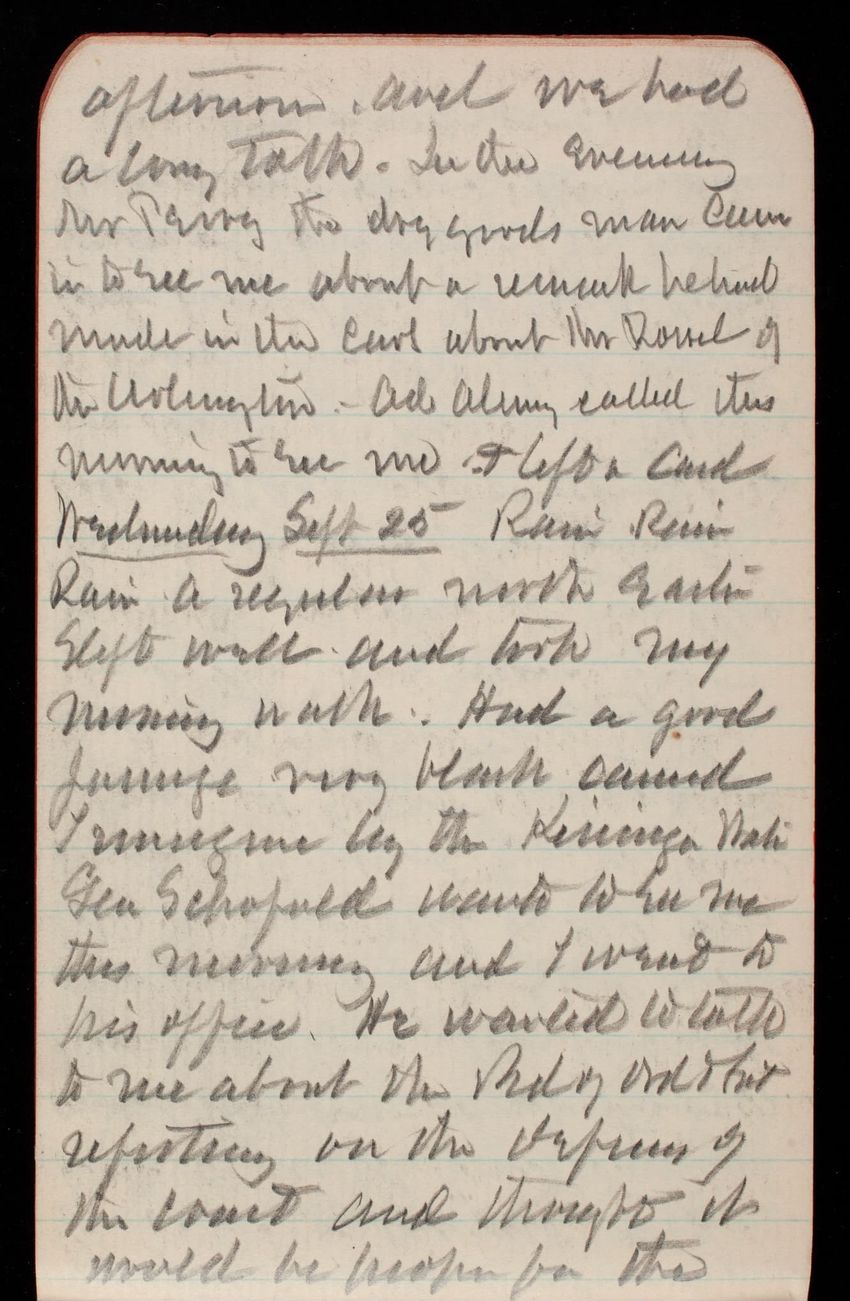 afternoon. and we had
a long talk. In the evening
Mr Perry the dry goods man came
in to see me about a remark he had
made in the cars about Mr Rossel of
the Arlington - Ad Almy called this
morning to see me & left a card
Wednesday Sept 25 Rain Rain
Rain A regular north Easter
Slept well and took my
morning walk. Had a good
passage very black caused
I imagine by the Kissinga Water
Gen Schofield wants to see me
this morning and I went to
his office. He wanted to talk
to me about the Bd of Ord & Fort
reporting on the defenses of
the coast and thought it
would be proper for the